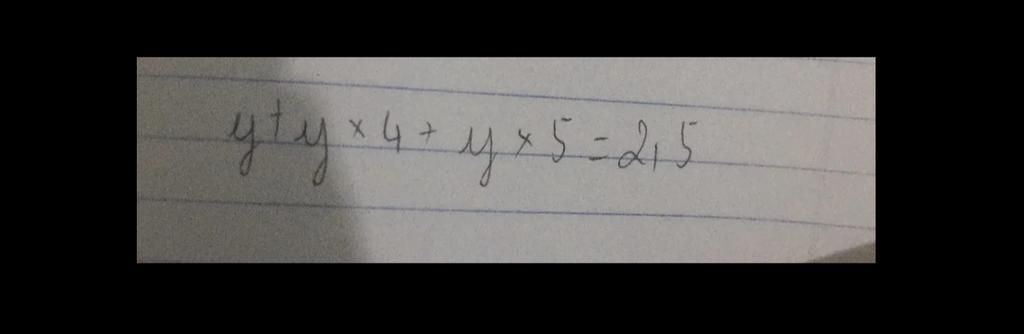 y+y×4+y×5=2,5